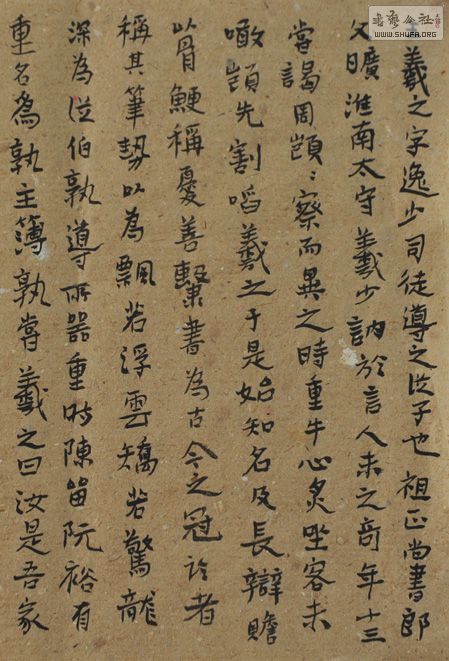 羲之字逸少司徒導之従子也祖正尚書郎
父曠淮南太守羲少訥於言人未之奇年十三
嘗謁周顗〻察而異之時重牛心炙坐客未
噉顗先割啗羲之于是始知名及長辯贍
以骨鯁稱憂善隸書為古今之冠論者
稱其筆勢以為飄若浮雲矯若驚龍
深為従伯敦導所器重時陳留阮裕有
重名為敦主簿敦嘗羲之曰汝是吾家
書藝公社
WWW.SHUFA.ORG